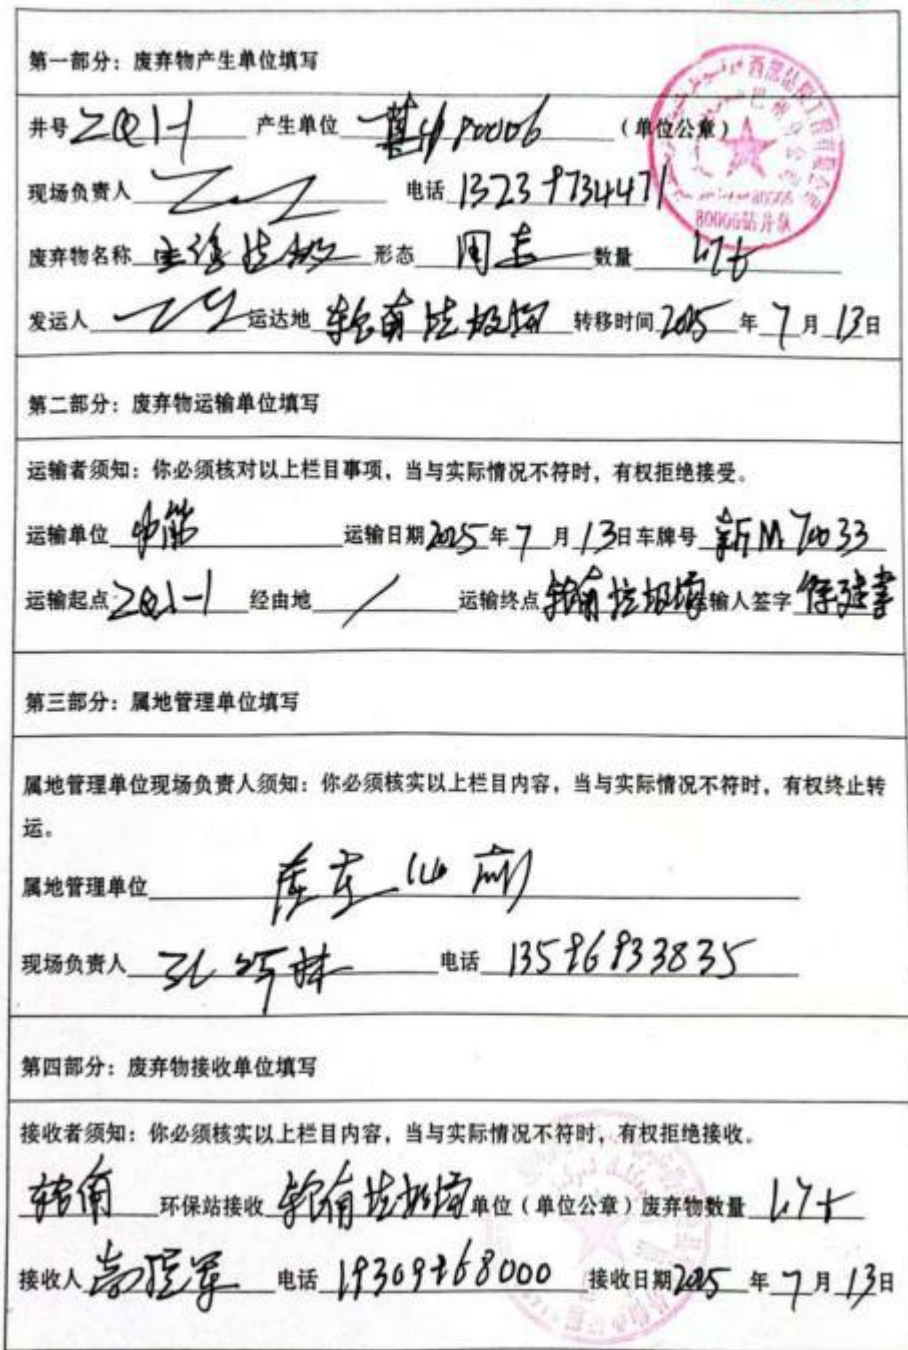 第一部分：废弃物产生单位填写
井号 ZQ1-1 产生单位 80006 （单位公章）
现场负责人 电话 13239734471
废弃物名称 生活垃圾 形态 固态 数量
发运人 运达地 轮南垃圾场 转移时间 2025 年 7 月 13 日
第二部分：废弃物运输单位填写
运输者须知：你必须核对以上栏目事项，当与实际情况不符时，有权拒绝接受。
运输单位 中能 运输日期 2025 年 7 月 13 日 车牌号 新M70033
运输起点 ZQ1-1 经由地 / 运输终点 轮南垃圾场 运输人签字
第三部分：属地管理单位填写
属地管理单位现场负责人须知：你必须核实以上栏目内容，当与实际情况不符时，有权终止转
运。
属地管理单位
现场负责人 电话 13586933835
第四部分：废弃物接收单位填写
接收者须知：你必须核实以上栏目内容，当与实际情况不符时，有权拒绝接收。
轮南 环保站接收 轮南垃圾场 单位（单位公章）废弃物数量
接收人 电话 19309268000 接收日期 2025 年 7 月 13 日
80006钻井队